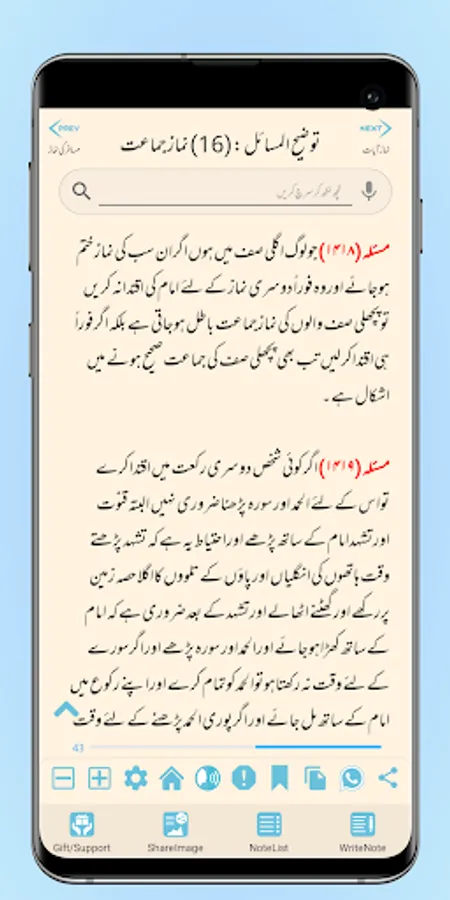 PREV
NEXT
مسافر کی نماز
توضیح المسائل : (16) نماز جماعت
نماز آیات
کچھ لکھ کر سرچ کریں
مسئلہ (۱۴۱۸) جو لوگ اگلی صف میں ہوں اگر ان سب کی نماز ختم
ہو جائے اور وہ فوراً دوسری نماز کے لئے امام کی اقتدا نہ کریں
تو پچھلی صف والوں کی نماز جماعت باطل ہو جاتی ہے بلکہ اگر فوراً
ہی اقتدا کر لیں تب بھی پچھلی صف کی جماعت صحیح ہونے میں
اشکال ہے۔
مسئلہ (۱۴۱۹) اگر کوئی شخص دوسری رکعت میں اقتدا کرے
تو اس کے لئے الحمد اور سورہ پڑھنا ضروری نہیں البتہ قنوت
اور تشہد امام کے ساتھ پڑھے اور احتیاط یہ ہے کہ تشہد پڑھتے
وقت ہاتھوں کی انگلیاں اور پاؤں کے تلووں کا اگلا حصہ زمین
پر رکھے اور گھٹنے اٹھا لے اور تشہد کے بعد ضروری ہے کہ امام
کے ساتھ کھڑا ہو جائے اور الحمد اور سورہ پڑھے اور اگر سورے
کے لئے وقت نہ رکھتا ہو تو الحمد کو تمام کرے اور اپنے رکوع میں
امام کے ساتھ مل جائے اور اگر پوری الحمد پڑھنے کے لئے وقت
43
Gift/Support
ShareImage
NoteList
WriteNote